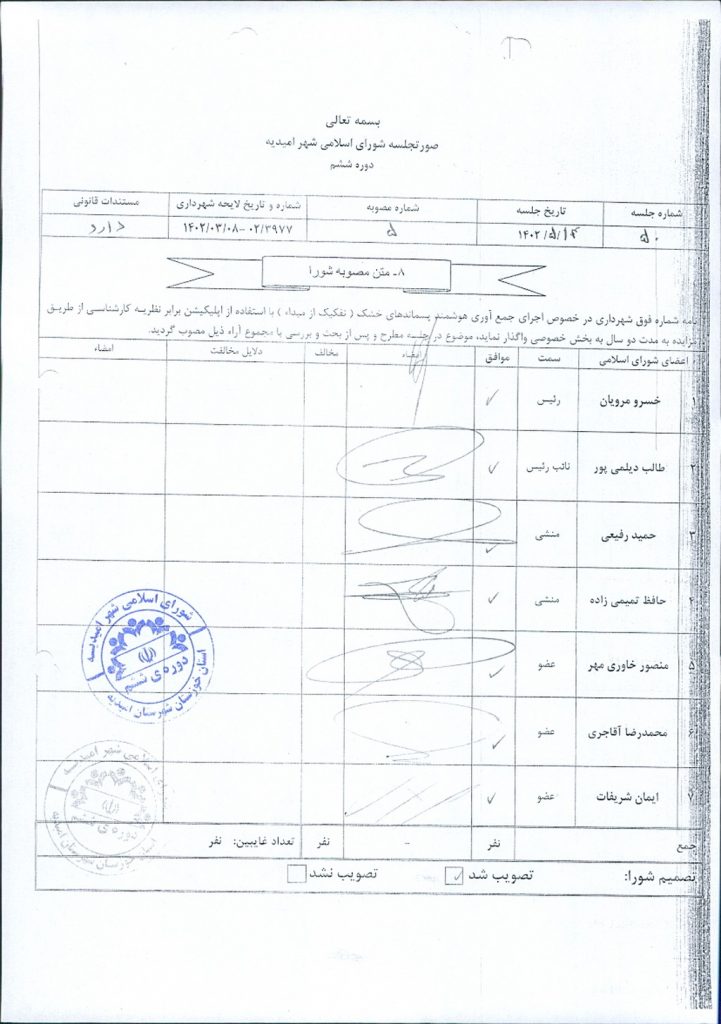 بسمه تعالی
صورتجلسه شورای اسلامی شهر امیدیه
دوره ششم
شماره جلسه تاریخ جلسه شماره مصوبه شماره و تاریخ لایحه شهرداری مستندات قانونی
۵۰ ۱۴۰۲/۵/۱۴ ۵ ۰۲/۳۹۷۷-۱۴۰۲/۰۳/۰۸ دارد
۸ـ متن مصوبه شورا
نامه شماره فوق شهرداری در خصوص اجرای جمع آوری هوشمند پسماندهای خشک ( تفکیک از مبداء ) با استفاده از اپلیکیشن برابر نظریه کارشناسی از طریق
مزایده به مدت دو سال به بخش خصوصی واگذار نماید، موضوع در جلسه مطرح و پس از بحث و بررسی با مجموع آراء ذیل مصوب گردید.
اعضای شورای اسلامی سمت موافق امضاء مخالف دلایل مخالفت امضاء
۱ خسرو مرویان رئیس ✓
۲ طالب دیلمی پور نائب رئیس ✓
۳ حمید رفیعی منشی ✓
۴ حافظ تمیمی زاده منشی ✓
۵ منصور خاوری مهر عضو ✓
۶ محمدرضا آقاجری عضو ✓
۷ ایمان شریفات عضو ✓
جمع نفر - نفر تعداد غایبین: نفر
تصمیم شورا: تصویب شد ✓ تصویب نشد
شورای اسلامی شهر امیدیه
دوره‌ی ششم
استان خوزستان شهرستان امیدیه
اسلامی شهر امیدیه
دوره‌ی ششم
شهرستان امیدیه